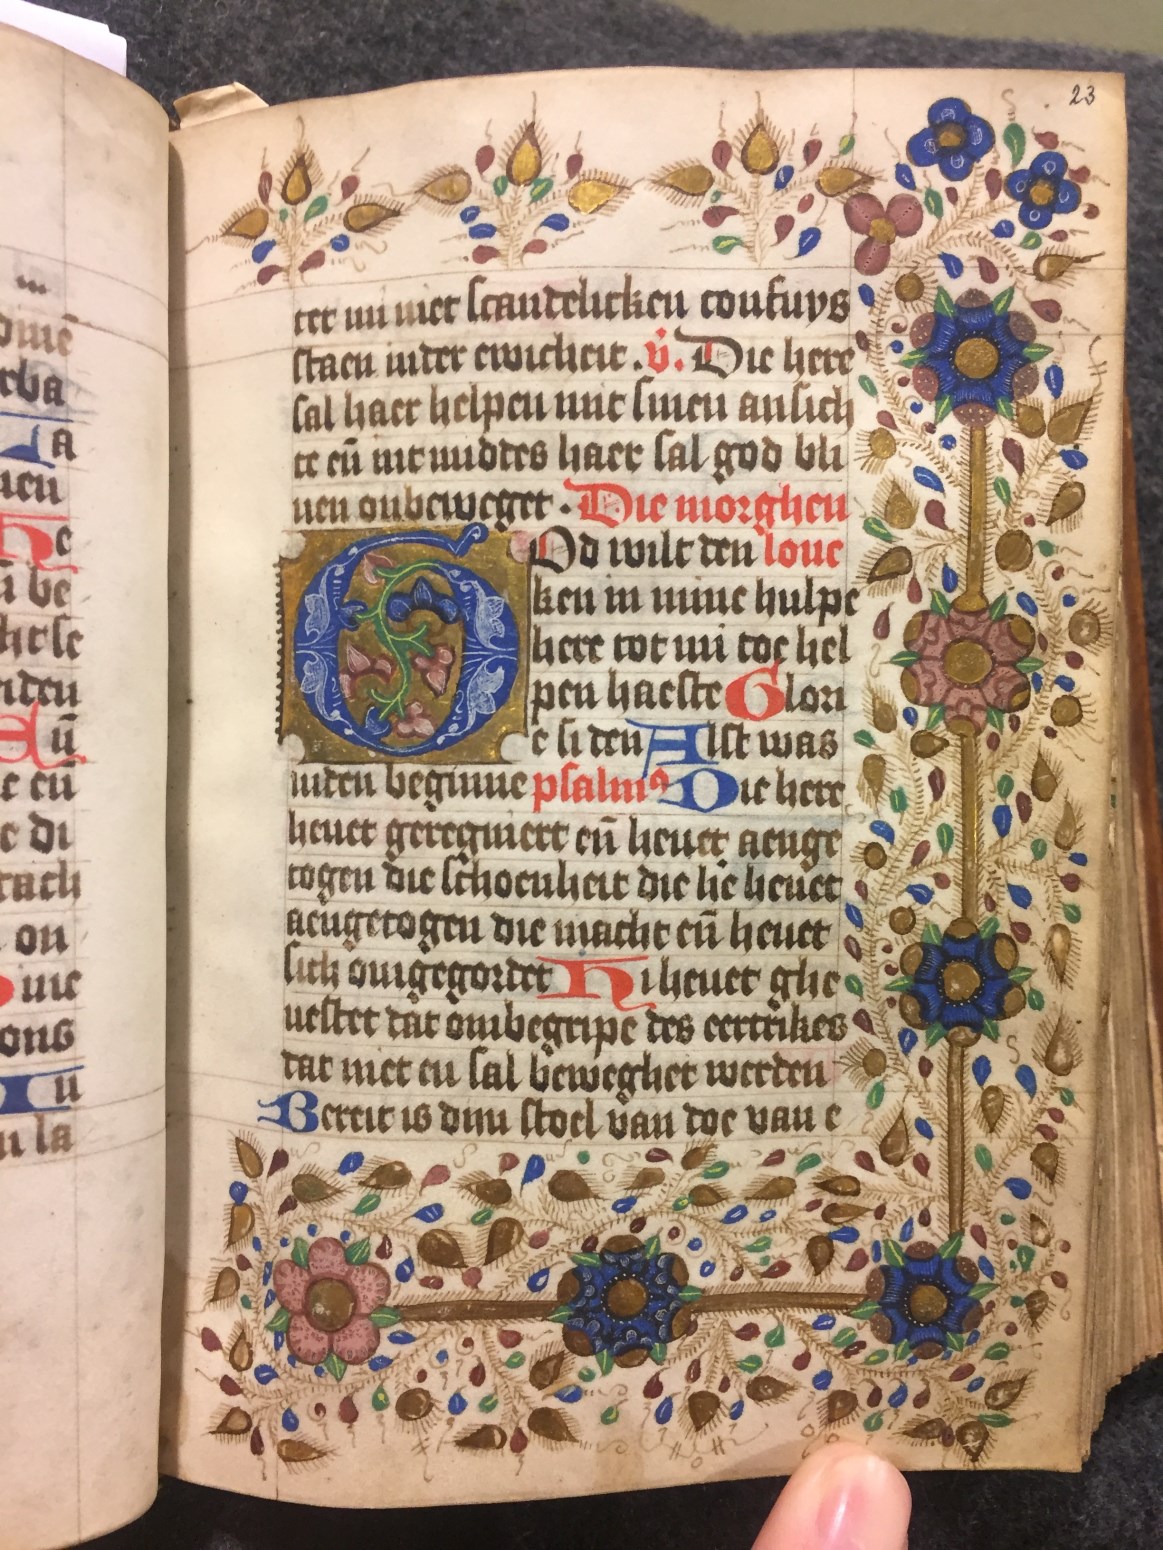 23
ter mi niet scandelicken confuys
staen inder ewicheit . v̄. Die here
sal haer helpen mit sinen ansich
te eñ mit middes haer sal god bli
uen onbeweget . Die morghen
God wilt den loue
ken in mine hulpe
here tot mi toe hel
pen haeste Glori
e si den Alst was
inden beginne psalmꝰ Die here
heuet geregniert eñ heuet aenge
togen die schoenheit die he heuet
aengetogen die macht eñ heuet
sich omgegordet Hi heuet ghe
uestet dat ombegripe des eertrikes
dat niet en sal beweghet werden
Bereit is dijn stoel van doe van e
dn̄e
erba
La
uen
he
be
nden
Eñ
eñ
di
rach
on
ons
la